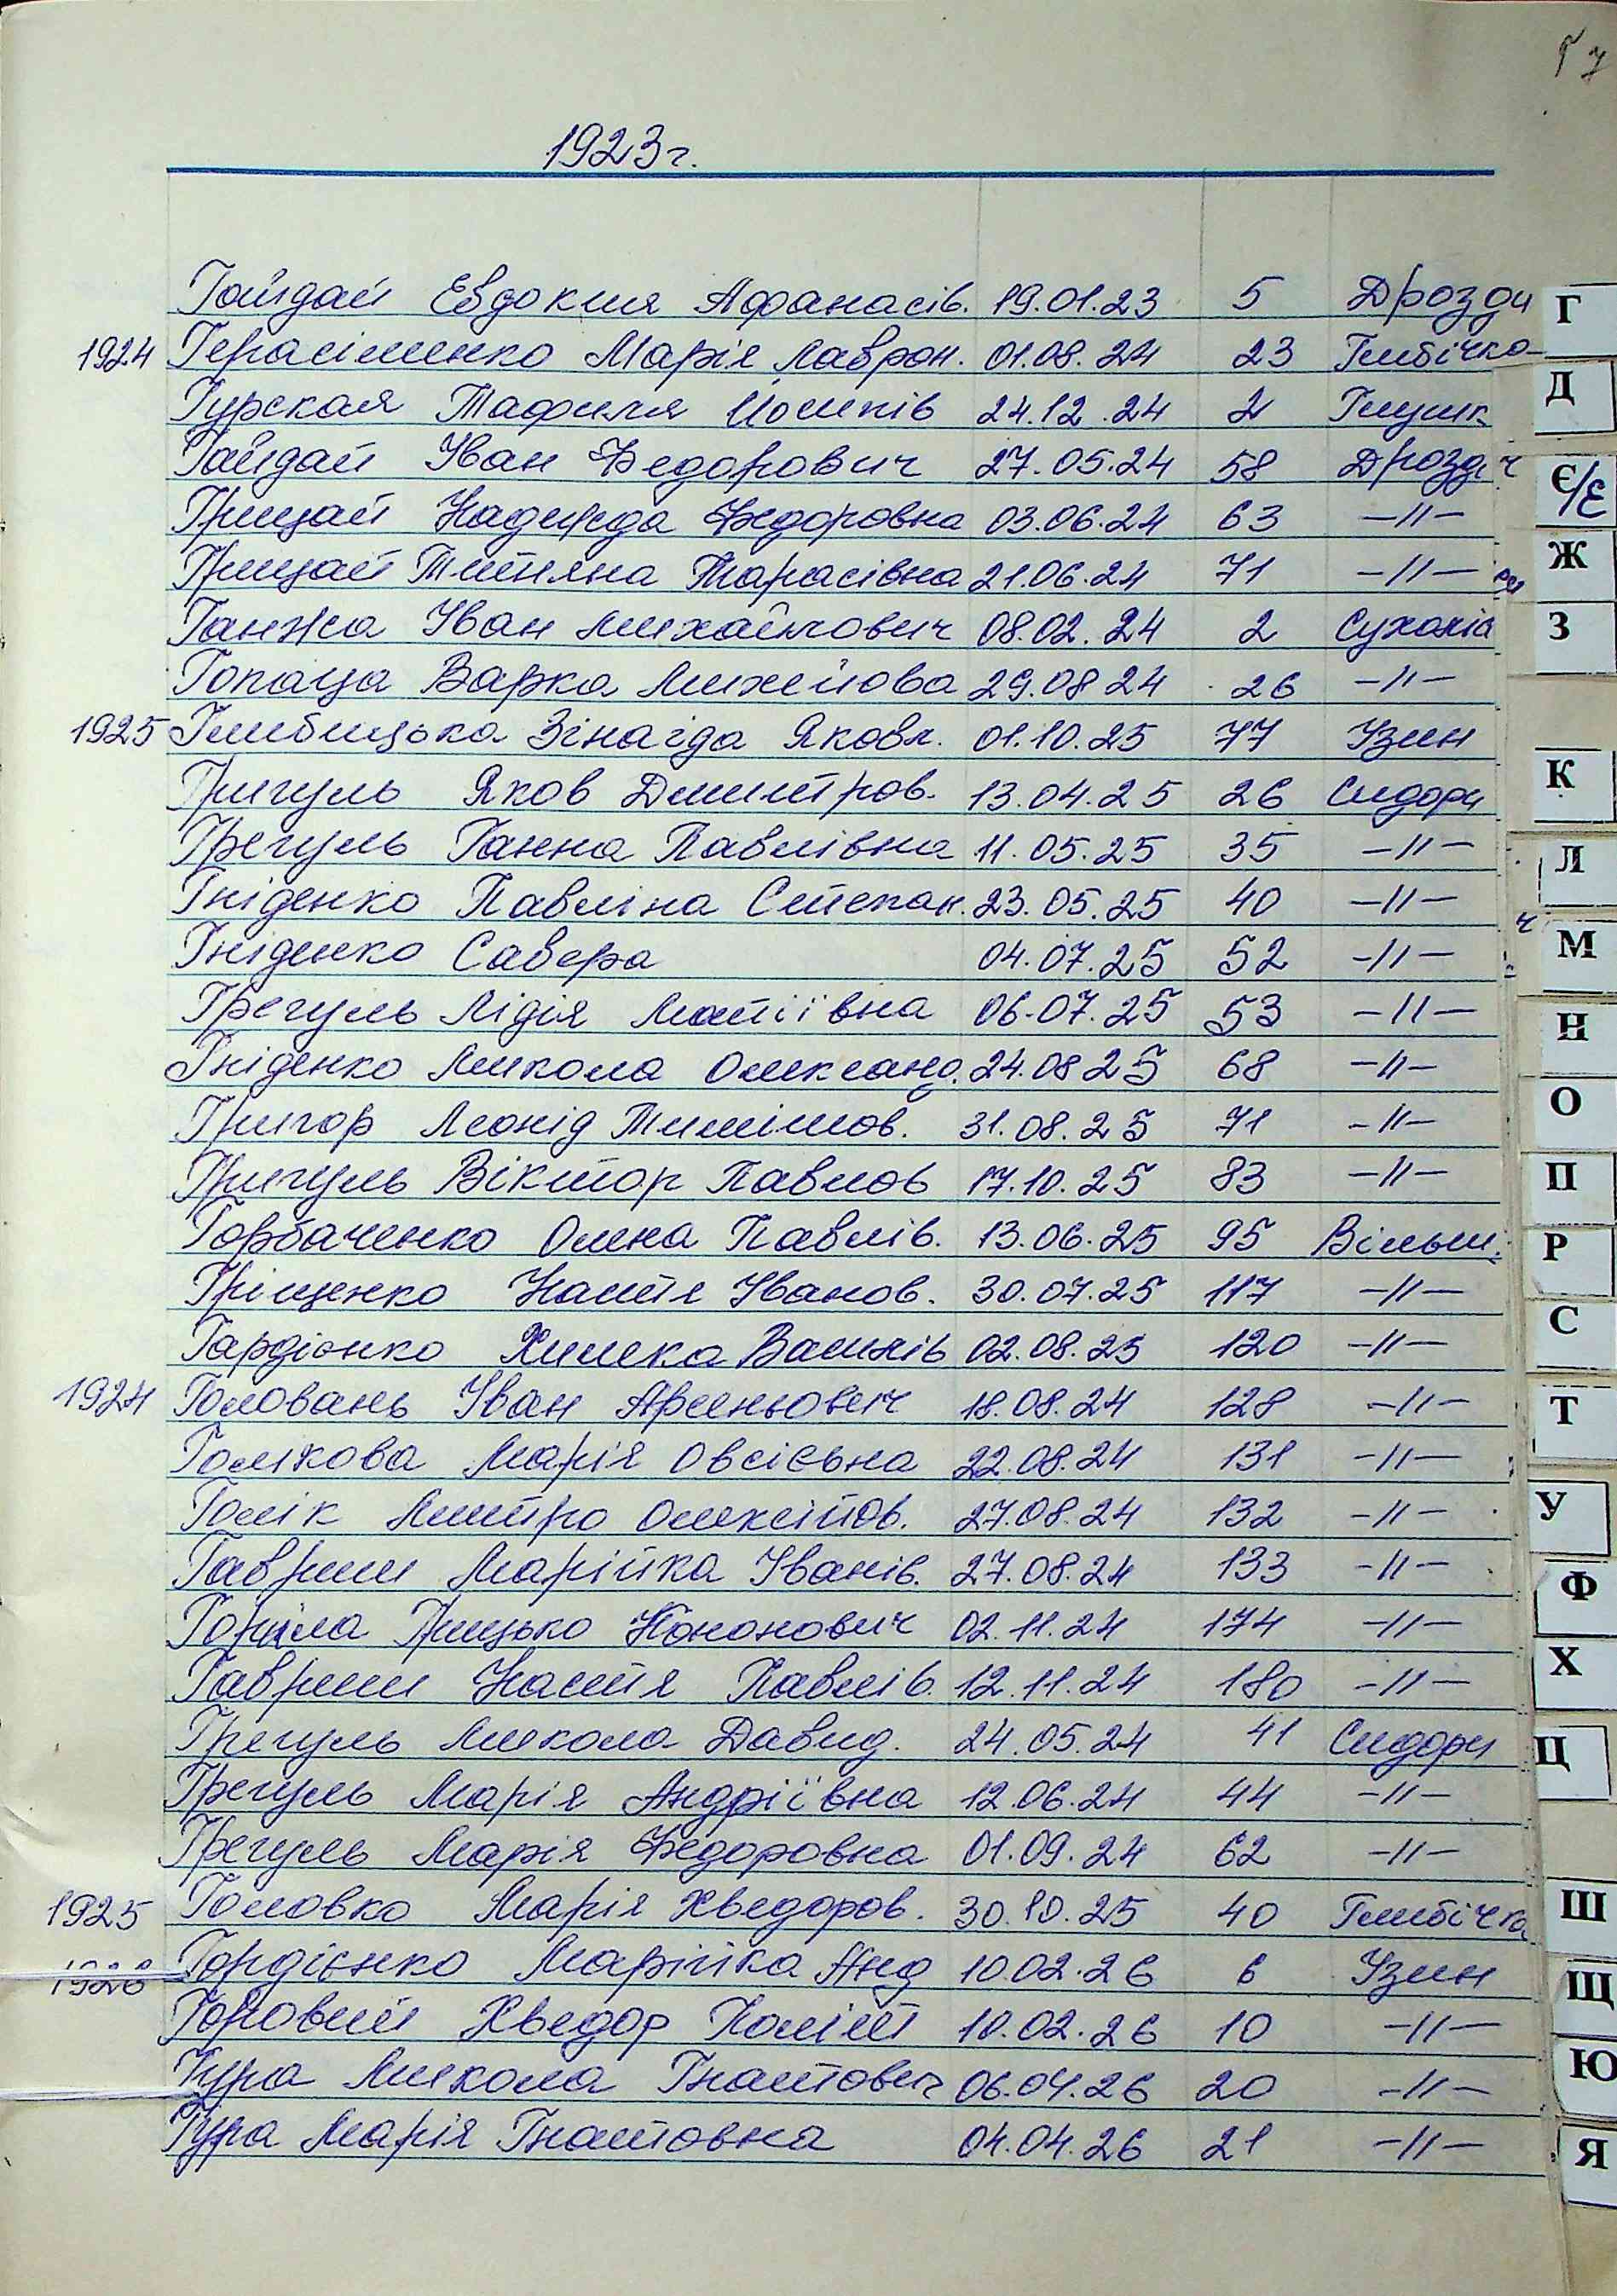 57
1923г.
Гайдай Евдокия Афанасів. 19.01.23 5 Дрозди
1924 Герасіменко Марія Лаврон. 01.08.24 23 Глибічка
Гурская Тафиля Йосипів 24.12.24 2
Гайдай Уван Федорович 27.05.24 58 Дрозди
Грицай Надежда Федоровна 03.06.24 63 -//-
Грицай Титяна Тарасівна 21.06.24 71 -//-
Ганжа Уван Михайлович 08.02.24 2 Сухоліс
Гопаца Варка Михейова 29.08 24 26 -//-
1925 Глибицька Зінаїда Яковл. 01.10.25 77 Узин
Григуль Яков Дмитров. 13.04.25 26 Сидори
Грегуль Ганна Павлівна 11.05.25 35 -//-
Гніденко Павліна Степан. 23.05.25 40 -//-
Гніденко Савера 04.07.25 52 -//-
Грегуль Лідія Матіївна 06.07.25 53 -//-
Гніденко Микола Олександ. 24.08 25 68 -//-
Григор Леонід Тимішов. 31.08.25 71 -//-
Григуль Віктор Павлов 17.10.25 83 -//-
Горбаченко Олена Павлів. 13.06.25 95 Вільш.
Гріщенко Настя Уванов. 30.07.25 117 -//-
Гардієнко Химка Василів 02.08.25 120 -//-
1924 Головань Уван Арсеньович 18.08.24 128 -//-
Голікова Марія Овсієвна 22.08.24 131 -//-
Голік Дмитро Олексійов. 27.08.24 132 -//-
Гавриш Марійка Уванів. 27.08.24 133 -//-
Грицько Кононович 02.11.24 174 -//-
Гавриш Настя Павлів. 12.11.24 180 -//-
Грегуль Микола Давид. 24.05.24 41 Сидори
Грегуль Марія Андріївна 12.06.24 44 -//-
Грегуль Марія Федоровна 01.09.24 62 -//-
1925 Головко Марія Хведоров. 30.10.25 40 Глибічка
1926 Гордієнко Марійка Анд 10.02.26 6 Узин
Горовий Хведор Політ 10.02.26 10 -//-
Гура Микола Гнатович 06.04.26 20 -//-
Гура Марія Гнатовна 04.04.26 21 -//-
Г
Д
Є/Е
Ж
З
К
Л
М
Н
О
П
Р
С
Т
У
Ф
Х
Ц
Ш
Щ
Ю
Я